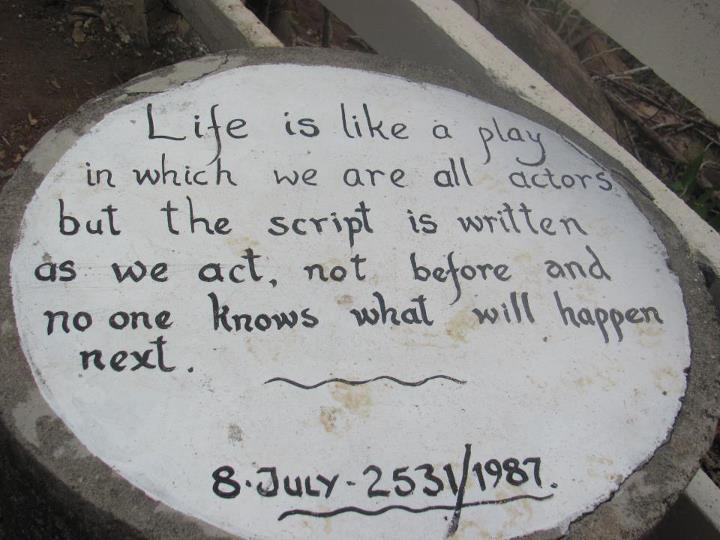 Life is like a play
in which we are all actors.
but the script is written
as we act, not before and
no one knows what will happen
next.
8. July - 2531/1987.